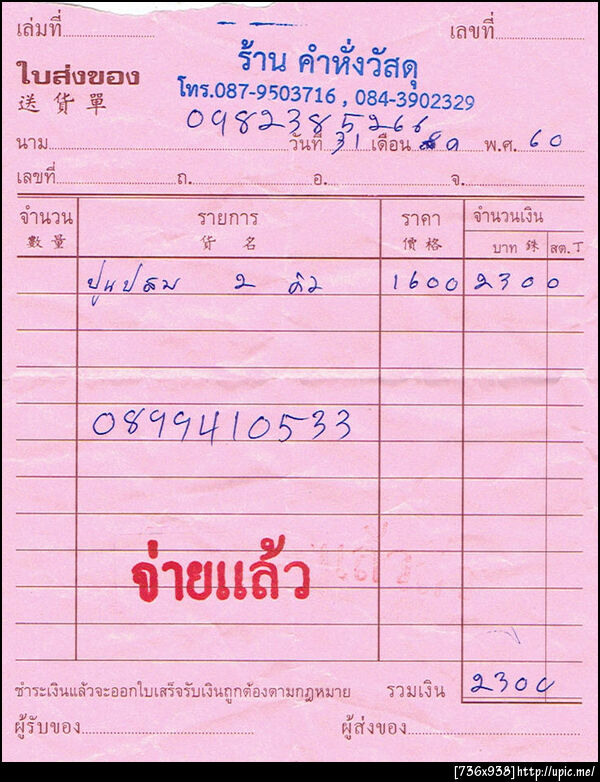 เล่มที่
เลขที่
ร้าน คำหั่งวัสดุ
โทร.087-9503716 , 084-3902329
ใบส่งของ
送貨單
0982385266
นาม วันที่ 31 เดือน พ.ศ. 60
เลขที่ ถ. อ. จ.
จำนวน รายการ ราคา จำนวนเงิน
數量 貨名 價格 บาท 銖 สต.丁
ปูนผสม 2 คิว 1600 2300
0899410533
จ่ายแล้ว
แล้ว
ชำระเงินแล้วจะออกใบเสร็จรับเงินถูกต้องตามกฎหมาย รวมเงิน 2300
ผู้รับของ ผู้ส่งของ
[736x938]http://upic.me/